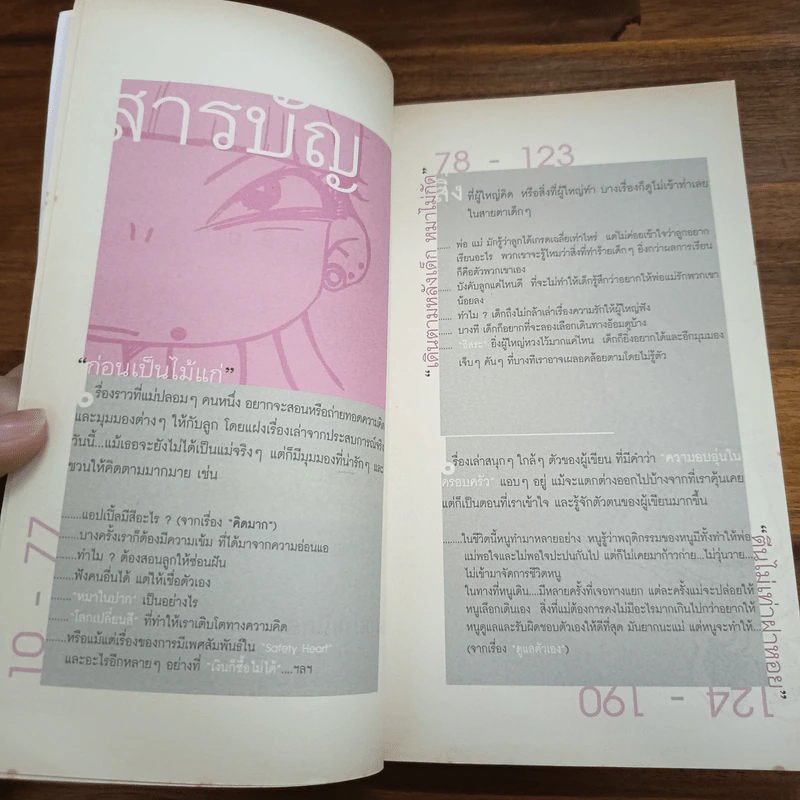 สารบัญ
“ก่อนเป็นไม้แก่”
เรื่องราวที่แม่ปลอมๆ คนหนึ่ง อยากจะสอนหรือถ่ายทอดความคิด
และมุมมองต่างๆ ให้กับลูก โดยแฝงเรื่องเล่าจากประสบการณ์จริง
วันนี้...แม้เธอจะยังไม่ได้เป็นแม่จริงๆ แต่ก็มีมุมมองที่น่ารักๆ และ
ชวนให้คิดตามมากมาย เช่น
......แอปเปิ้ลมีสีอะไร ? (จากเรื่อง "คิดมาก")
......บางครั้งเราก็ต้องมีความเข้ม ที่ได้มาจากความอ่อนแอ
......ทำไม ? ต้องสอนลูกให้ซ่อนฝัน
......ฟังคนอื่นได้ แต่ให้เชื่อตัวเอง
......"หมาในปาก" เป็นอย่างไร
......"โลกเปลี่ยนสี" ที่ทำให้เราเติบโตทางความคิด
......หรือแม้แต่เรื่องของการมีเพศสัมพันธ์ใน "Safety Heart"
และอะไรอีกหลายๆ อย่างที่ "เงินก็ซื้อไม่ได้"....ฯลฯ
10 - 77
78 - 123
“เดินตามหลังเด็ก หมาไม่กัด”
สิ่ง ที่ผู้ใหญ่คิด หรือสิ่งที่ผู้ใหญ่ทำ บางเรื่องก็ดูไม่เข้าท่าเลย
ในสายตาเด็กๆ
...... พ่อ แม่ มักรู้ว่าลูกได้เกรดเฉลี่ยเท่าไหร่ แต่ไม่ค่อยเข้าใจว่าลูกอยาก
เรียนอะไร พวกเขาจะรู้ไหมว่าสิ่งที่ทำร้ายเด็กๆ ยิ่งกว่าผลการเรียน
ก็คือตัวพวกเขาเอง
...... บังคับลูกแค่ไหนดี ที่จะไม่ทำให้เด็กรู้สึกว่าอยากให้พ่อแม่รักพวกเขา
น้อยลง
...... ทำไม ? เด็กถึงไม่กล้าเล่าเรื่องความรักให้ผู้ใหญ่ฟัง
...... บางที เด็กก็อยากที่จะลองเลือกเดินทางอ้อมดูบ้าง
...... "อิสระ" ยิ่งผู้ใหญ่หวงไว้มากแค่ไหน เด็กก็ยิ่งอยากได้และอีกมุมมอง
เจ็บๆ คันๆ ที่บางทีเราอาจเผลอคล้อยตามโดยไม่รู้ตัว
เรื่องเล่าสนุกๆ ใกล้ๆ ตัวของผู้เขียน ที่มีคำว่า "ความอบอุ่นใน
ครอบครัว" แอบๆ อยู่ แม้จะแตกต่างออกไปบ้างจากที่เราคุ้นเคย
แต่ก็เป็นตอนที่เราเข้าใจ และรู้จักตัวตนของผู้เขียนมากขึ้น
.......ในชีวิตนี้หนูทำมาหลายอย่าง หนูรู้ว่าพฤติกรรมของหนูมีทั้งทำให้พ่อ
แม่พอใจและไม่พอใจปะปนกันไป แต่ก็ไม่เคยมาก้าวก่าย...ไม่วุ่นวาย...
ไม่เข้ามาจัดการชีวิตหนู
ในทางที่หนูเดิน...มีหลายครั้งที่เจอทางแยก แต่ละครั้งแม่จะปล่อยให้
หนูเลือกเดินเอง สิ่งที่แม่ต้องการคงไม่มีอะไรมากเกินไปกว่าอยากให้
หนูดูแลและรับผิดชอบตัวเองให้ดีที่สุด มันยากนะแม่ แต่หนูจะทำให้....
(จากเรื่อง "ดูแลตัวเอง")
124 - 190